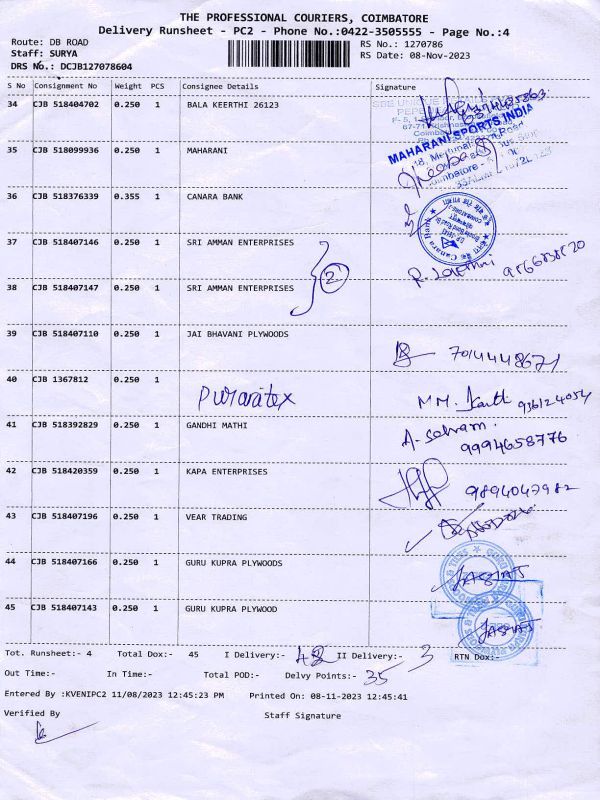 THE PROFESSIONAL COURIERS, COIMBATORE
Delivery Runsheet - PC2 - Phone No.:0422-3505555 - Page No.:4
Route: DB ROAD
RS No.: 1270786
Staff: SURYA
RS Date: 08-Nov-2023
DRS No.: DCJB127078604
S No Consignment No Weight PCS Consignee Details Signature
34 CJB 518404702 0.250 1 BALA KEERTHI 26123
MAHARANI SPORTS INDIA
35 CJB 518099936 0.250 1 MAHARANI
36 CJB 518376339 0.355 1 CANARA BANK
Canara Bank
37 CJB 518407146 0.250 1 SRI AMMAN ENTERPRISES
2
38 CJB 518407147 0.250 1 SRI AMMAN ENTERPRISES
39 CJB 518407110 0.250 1 JAI BHAVANI PLYWOODS
7014448671
40 CJB 1367812 0.250 1
41 CJB 518392829 0.250 1 GANDHI MATHI
9994658776
42 CJB 518420359 0.250 1 KAPA ENTERPRISES
9894047982
43 CJB 518407196 0.250 1 VEAR TRADING
44 CJB 518407166 0.250 1 GURU KUPRA PLYWOODS
45 CJB 518407143 0.250 1 GURU KUPRA PLYWOOD
Tot. Runsheet:- 4 Total Dox:- 45 I Delivery:- 42 II Delivery:- 3 RTN Dox:-
Out Time:- In Time:- Total POD:- Delvy Points:- 35
Entered By :KVENIPC2 11/08/2023 12:45:23 PM Printed On: 08-11-2023 12:45:41
Verified By Staff Signature